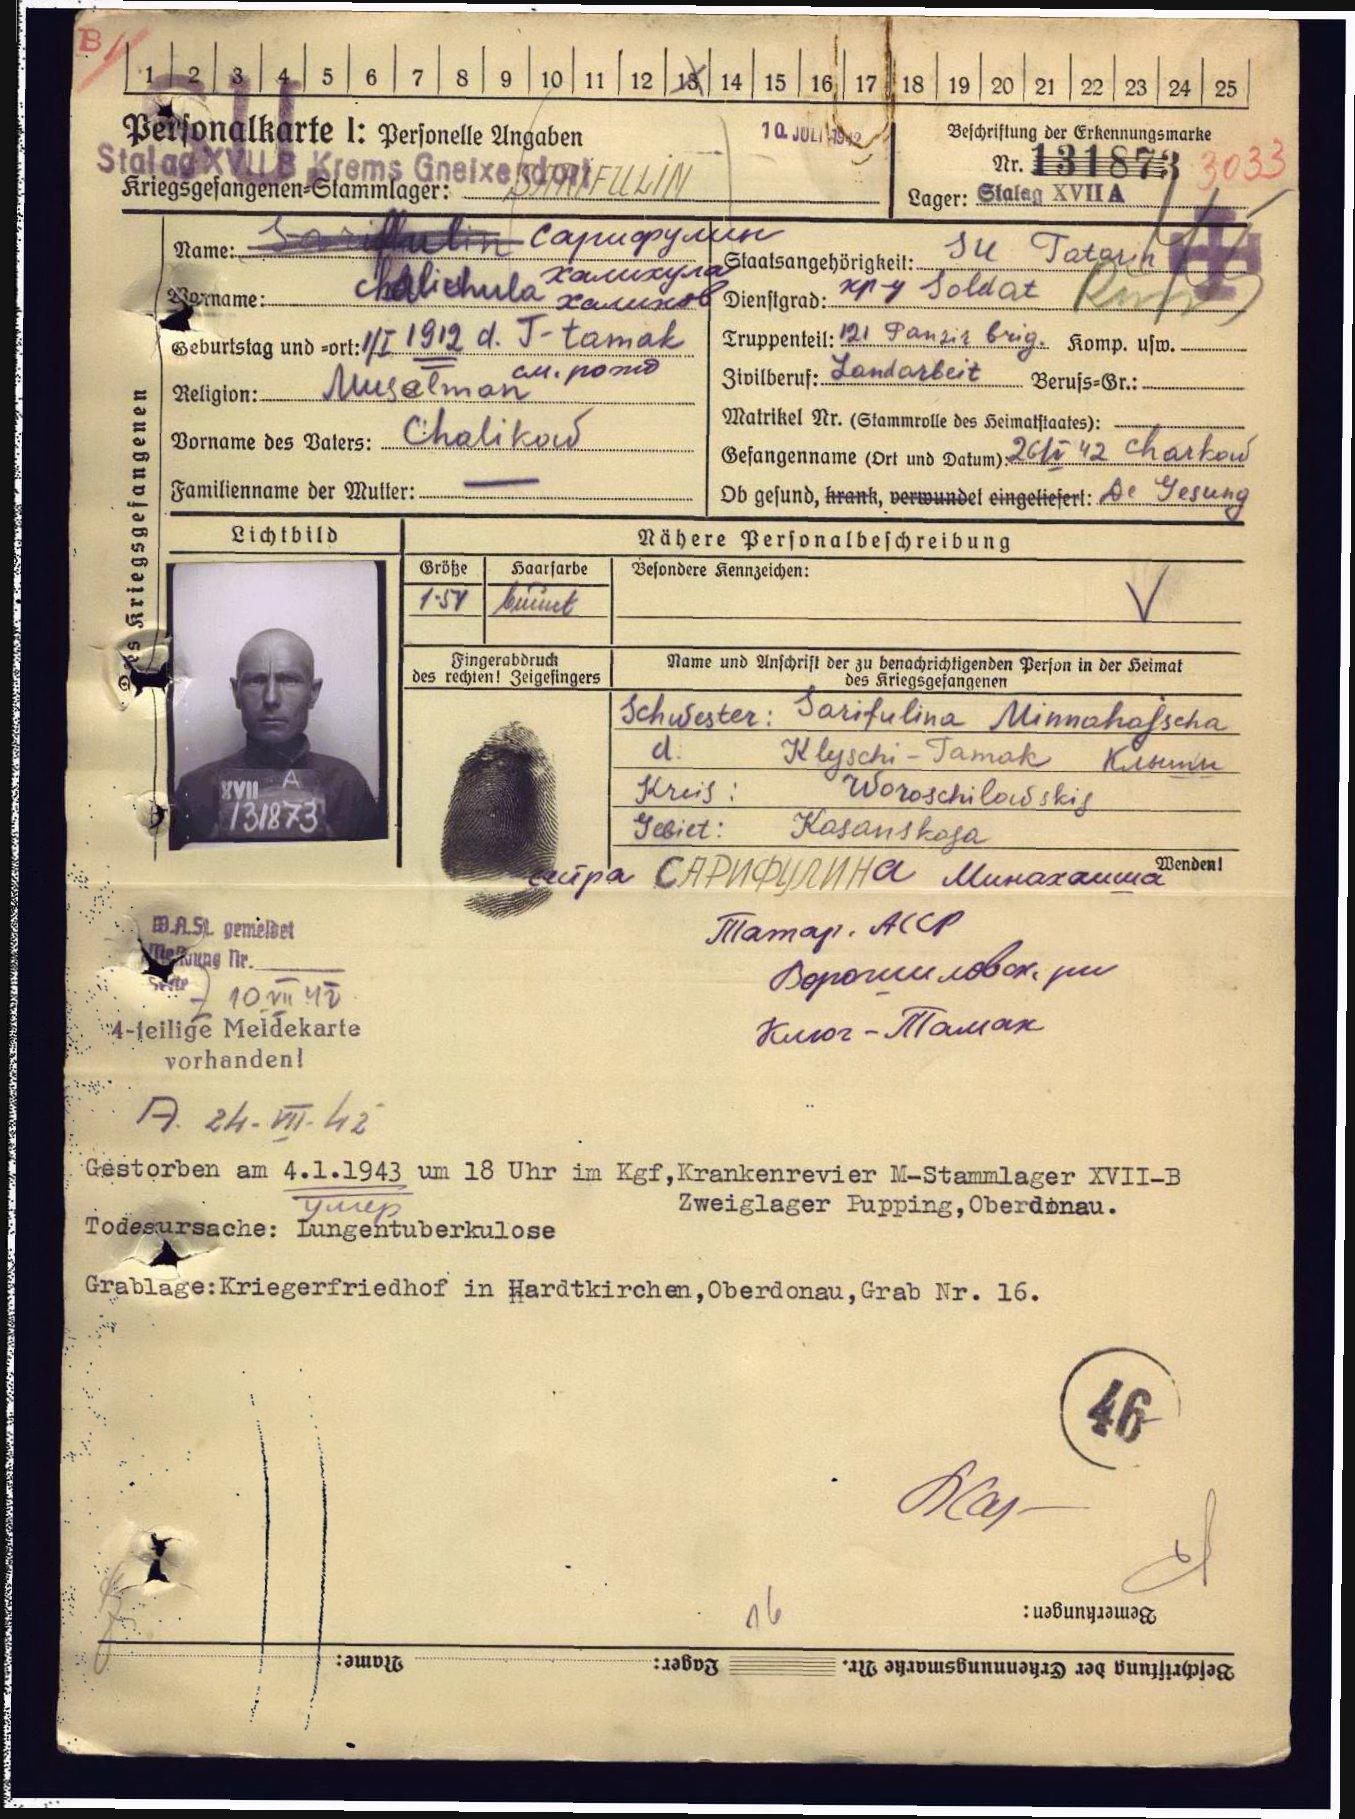 B
1 2 3 4 5 6 7 8 9 10 11 12 13 14 15 16 17 18 19 20 21 22 23 24 25
SU
Personalkarte I: Personelle Angaben
10. JULI 1942
Beschriftung der Erkennungsmarke
Stalag XVII B Krems Gneixendorf
Nr. 131873 3033
Kriegsgefangenen-Stammlager: SARIFULIN
Lager: Stalag XVII A
Des Kriegsgefangenen
Name: Sariffulin Сарифулин
Staatsangehörigkeit: SU Tatarin
Vorname: Chalichula Халихула Халихов
Dienstgrad: кр-ц Soldat
Geburtstag und =ort: 1/I 1912 d. T-tamak
Truppenteil: 121 Panzir brig. Komp. usw.
см. рожд
Religion: Muselman
Zivilberuf: Landarbeit Berufs=Gr.:
Matrikel Nr. (Stammrolle des Heimatstaates):
Vorname des Vaters: Chalikow
Gefangenname (Ort und Datum): 26/V 42 Charkow
Familienname der Mutter: —
Ob gesund, krank, verwundet eingeliefert: De Gesung
Lichtbild
Nähere Personalbeschreibung
Größe Haarfarbe Besondere Kennzeichen:
1·54
XVII A
131873
Fingerabdruck
des rechten! Zeigefingers
Name und Anschrift der zu benachrichtigenden Person in der Heimat
des Kriegsgefangenen
Schwester: Sarifulina Minnahafscha
d. Klyschi-Tamak
Kreis: Woroschilowskij
Gebiet: Kasanskoja
Wenden!
сестра САРИФУЛИНА Минахаиша
W.A.St. gemeldet
Meldung Nr.
Seite
10 VII 42
Татар. АССР
Ворошиловск. рн
Ключ-Тамак
4-teilige Meldekarte
vorhanden!
A. 24-VII-42
Gestorben am 4.1.1943 um 18 Uhr im Kgf,Krankenrevier M-Stammlager XVII-B
умер
Zweiglager Pupping,Oberdonau.
Todesursache: Lungentuberkulose
Grablage:Kriegerfriedhof in Hardtkirchen,Oberdonau,Grab Nr. 16.
46
16
Bemerkungen:
Beschriftung der Erkennungsmarke Nr. Lager: Name: